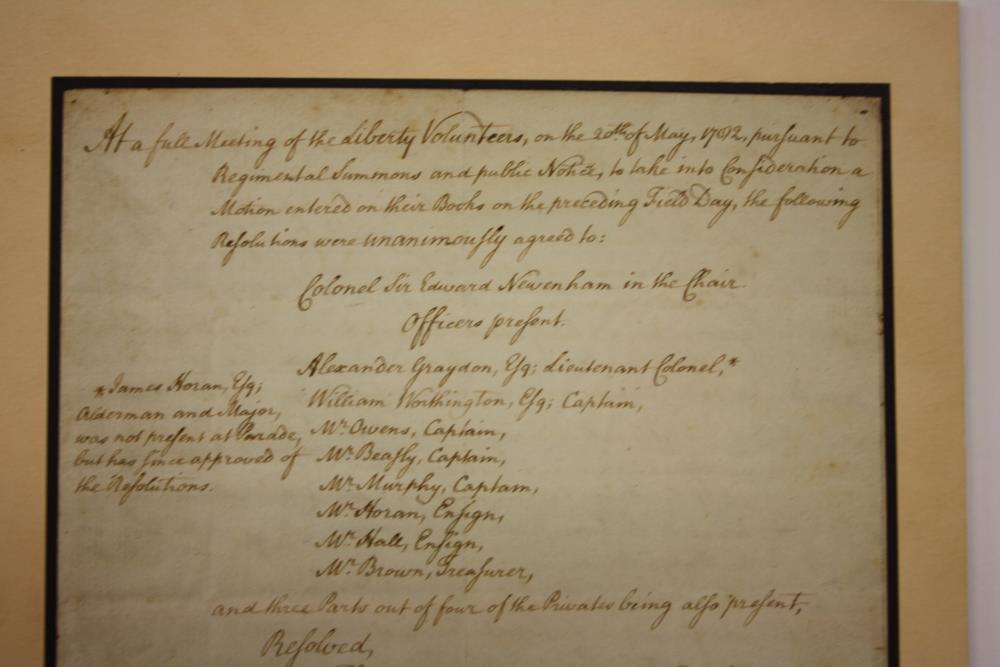 At a full Meeting of the Liberty Volunteers, on the 20th of May, 1782, pursuant to
Regimental Summons and public Notice, to take into Consideration a
Motion entered on their Books on the preceding Field Day, the following
Resolutions were unanimously agreed to:
Colonel Sir Edward Newenham in the Chair.
Officers present.
Alexander Graydon, Esq; Lieutenant Colonel,*
William Worthington, Esq; Captain,
Mr. Owens, Captain,
Mr. Beasly, Captain,
Mr. Murphy, Captain,
Mr. Horan, Ensign,
Mr. Hall, Ensign,
Mr. Brown, Treasurer,
*James Horan, Esq;
Alderman and Major,
was not present at Parade,
but has since approved of
the Resolutions.
and three Parts out of four of the Privates being also present,
Resolved,